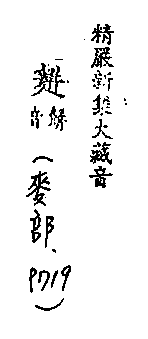 精嚴新集大藏音
音
(麥部、P719)